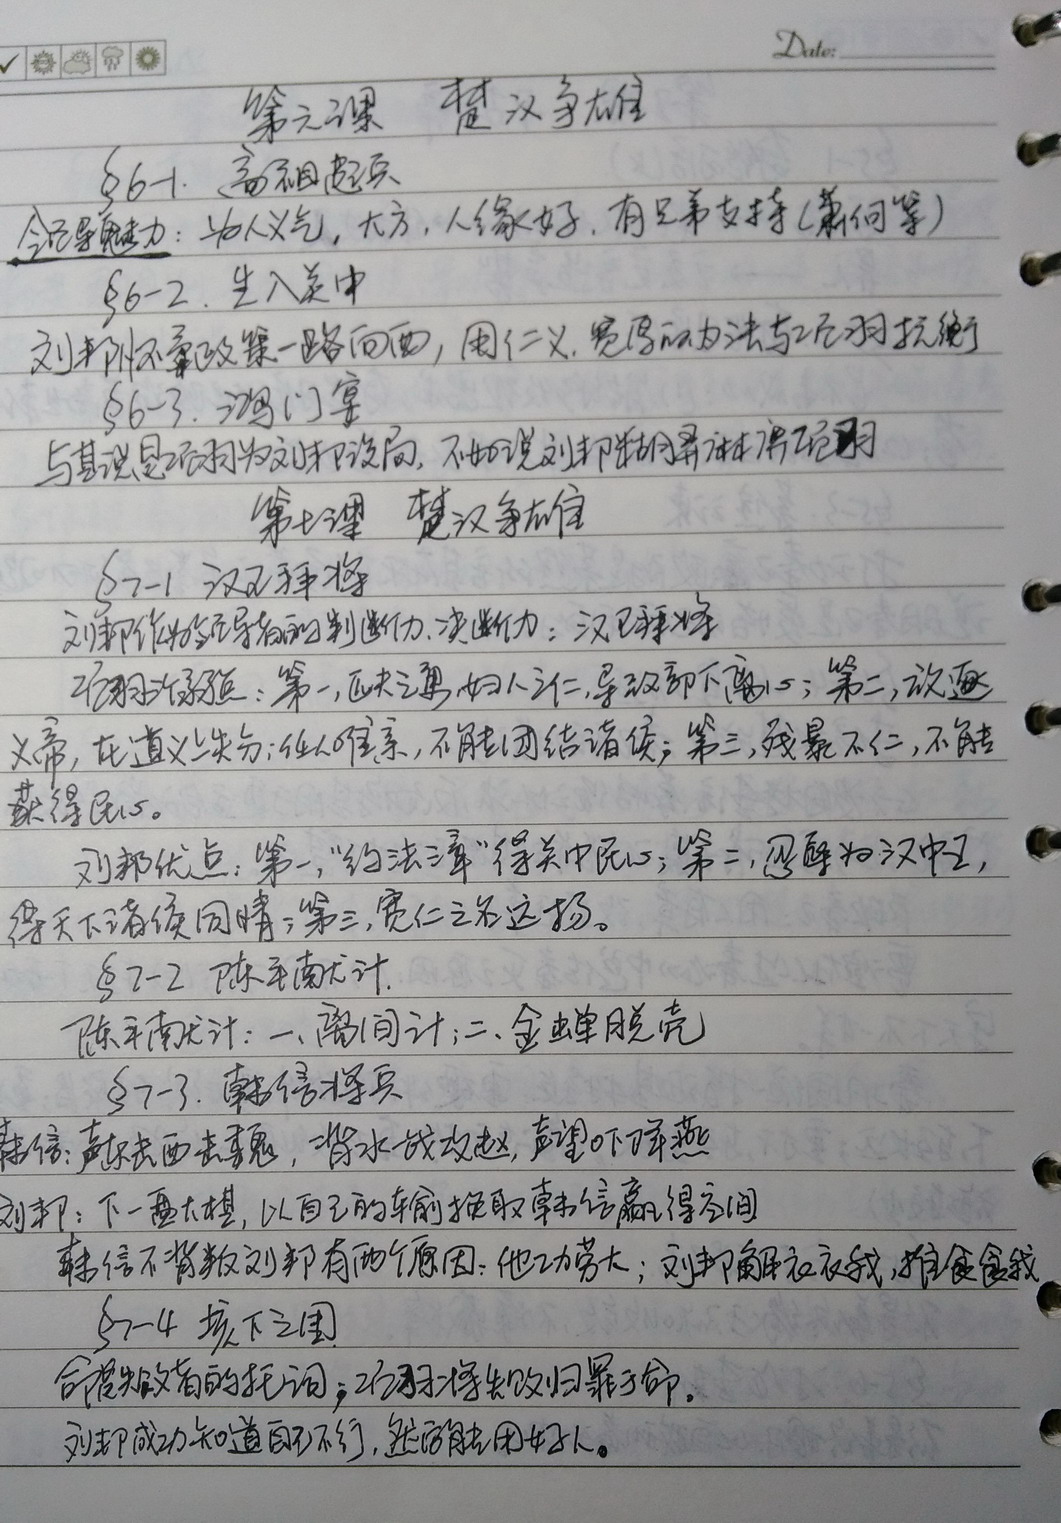 Date:
第六课 楚汉争雄
§6-1. 高祖起兵
领导魅力：为人义气，大方，人缘好，有兄弟支持（萧何等）
§6-2. 生入关中
刘邦怀柔政策一路向西，用仁义、宽厚的办法与项羽抗衡
§6-3. 鸿门宴
与其说是项羽为刘邦设局，不如说刘邦精算谋项羽
第七课 楚汉争雄
§7-1 汉王拜将
刘邦作为领导者的判断力、决断力：汉王拜将
项羽：第一，匹夫之勇，妇人之仁，导致部下离心；第二，放逐
义帝，在道义上失分；任人唯亲，不能团结诸侯；第三，残暴不仁，不能
获得民心。
刘邦优点：第一，“约法三章”得关中民心；第二，忍辱为汉中王，
得天下诸侯同情；第三，宽仁之名远扬。
§7-2 陈平献计.
陈平献计：一、离间计；二、金蝉脱壳
§7-3. 韩信将兵
韩信：声东击西击魏，背水一战攻赵，声望吓降燕
刘邦：下一盘大棋，以自己的输换取韩信赢得空间
韩信不背叛刘邦有两个原因：他功劳大；刘邦解衣衣我，推食食我
§7-4 垓下之围
命是失败者的托词；项羽将失败归罪于命。
刘邦成功知道自己不行，然而能用好人。